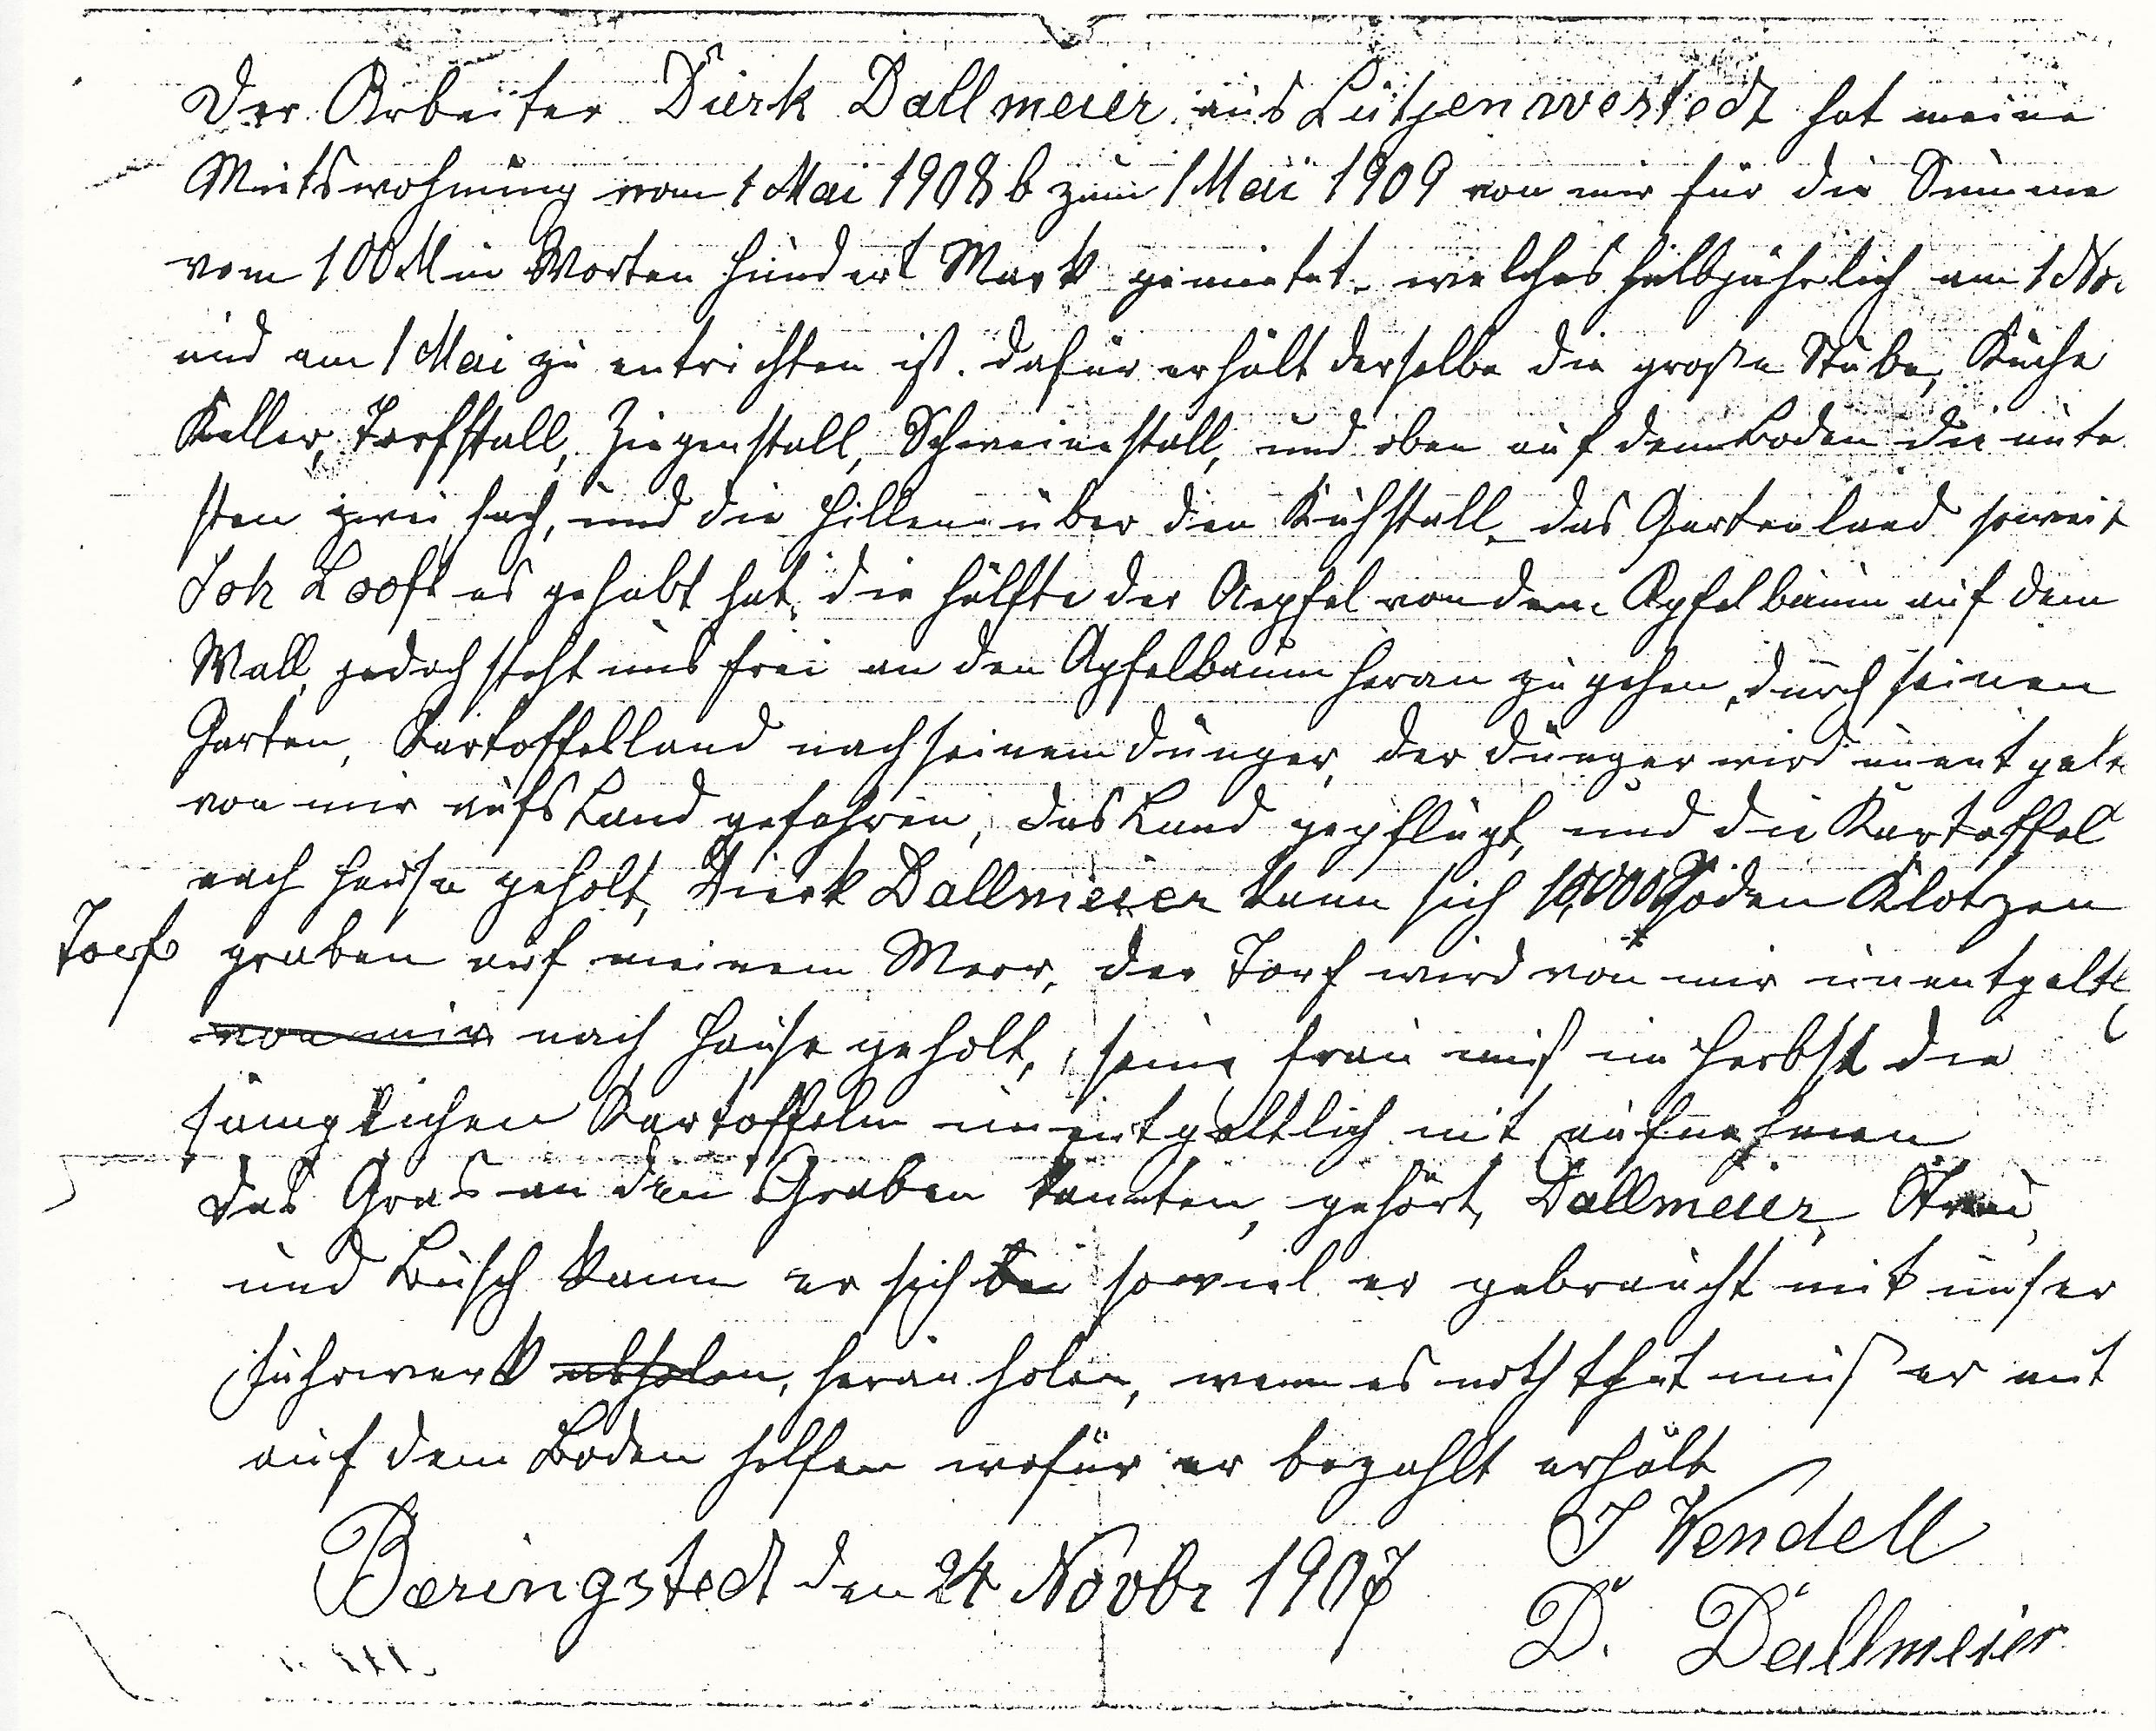 Der Arbeiter Dierk Dallmeier aus Lütjenwestedt hat meine
Mietswohnung vom 1 Mai 1908 b zum 1 Mai 1909 von mir für die Summe
vom 100 M in Worten hundert Mark gemietet. welches halbjährlich am 1 Nov
und am 1 Mai zu entrichten ist. dafür erhält derselbe die große Stube, Küche
Keller, Torfstall, Ziegenstall, Schweinestall, und oben auf dem Boden die unte
sten zwei fach, und die Hillen über den Kuhstall, das Gartenland soweit
Joh Looft es gehabt hat, die hälfte der Aepfel von dem Apfelbaum auf dem
Wall, jedoch steht uns frei an den Apfelbaum heran zu gehen, durch seinen
Garten, Kartoffelland nach seinem dünger, der dünger wird unentgelt
von mir aufs Land gefahren, das Land gepflügt, und die Kartoffel
nach hause geholt, Dierk Dallmeier kann sich 10,000 Soden Klotzen
Torf graben auf meinem Moor, der Torf wird von mir unentgeltl
von mir nach hause geholt, seine frau muß im herbst die
sämptlichen Kartoffeln unentgeltlich mit aufnehmen
das Gras an den Graben kannten, gehört, Dallmeier,
und Busch kann er sich soviel er gebraucht mit unser
fuhrwerk abholen, heran holen, wenn es noth thut muß er mit
auf dem Boden helfen wofür er bezahlt erhält
J Wendell
Beringstedt den 24 Novbr 1907
D. Dallmeier